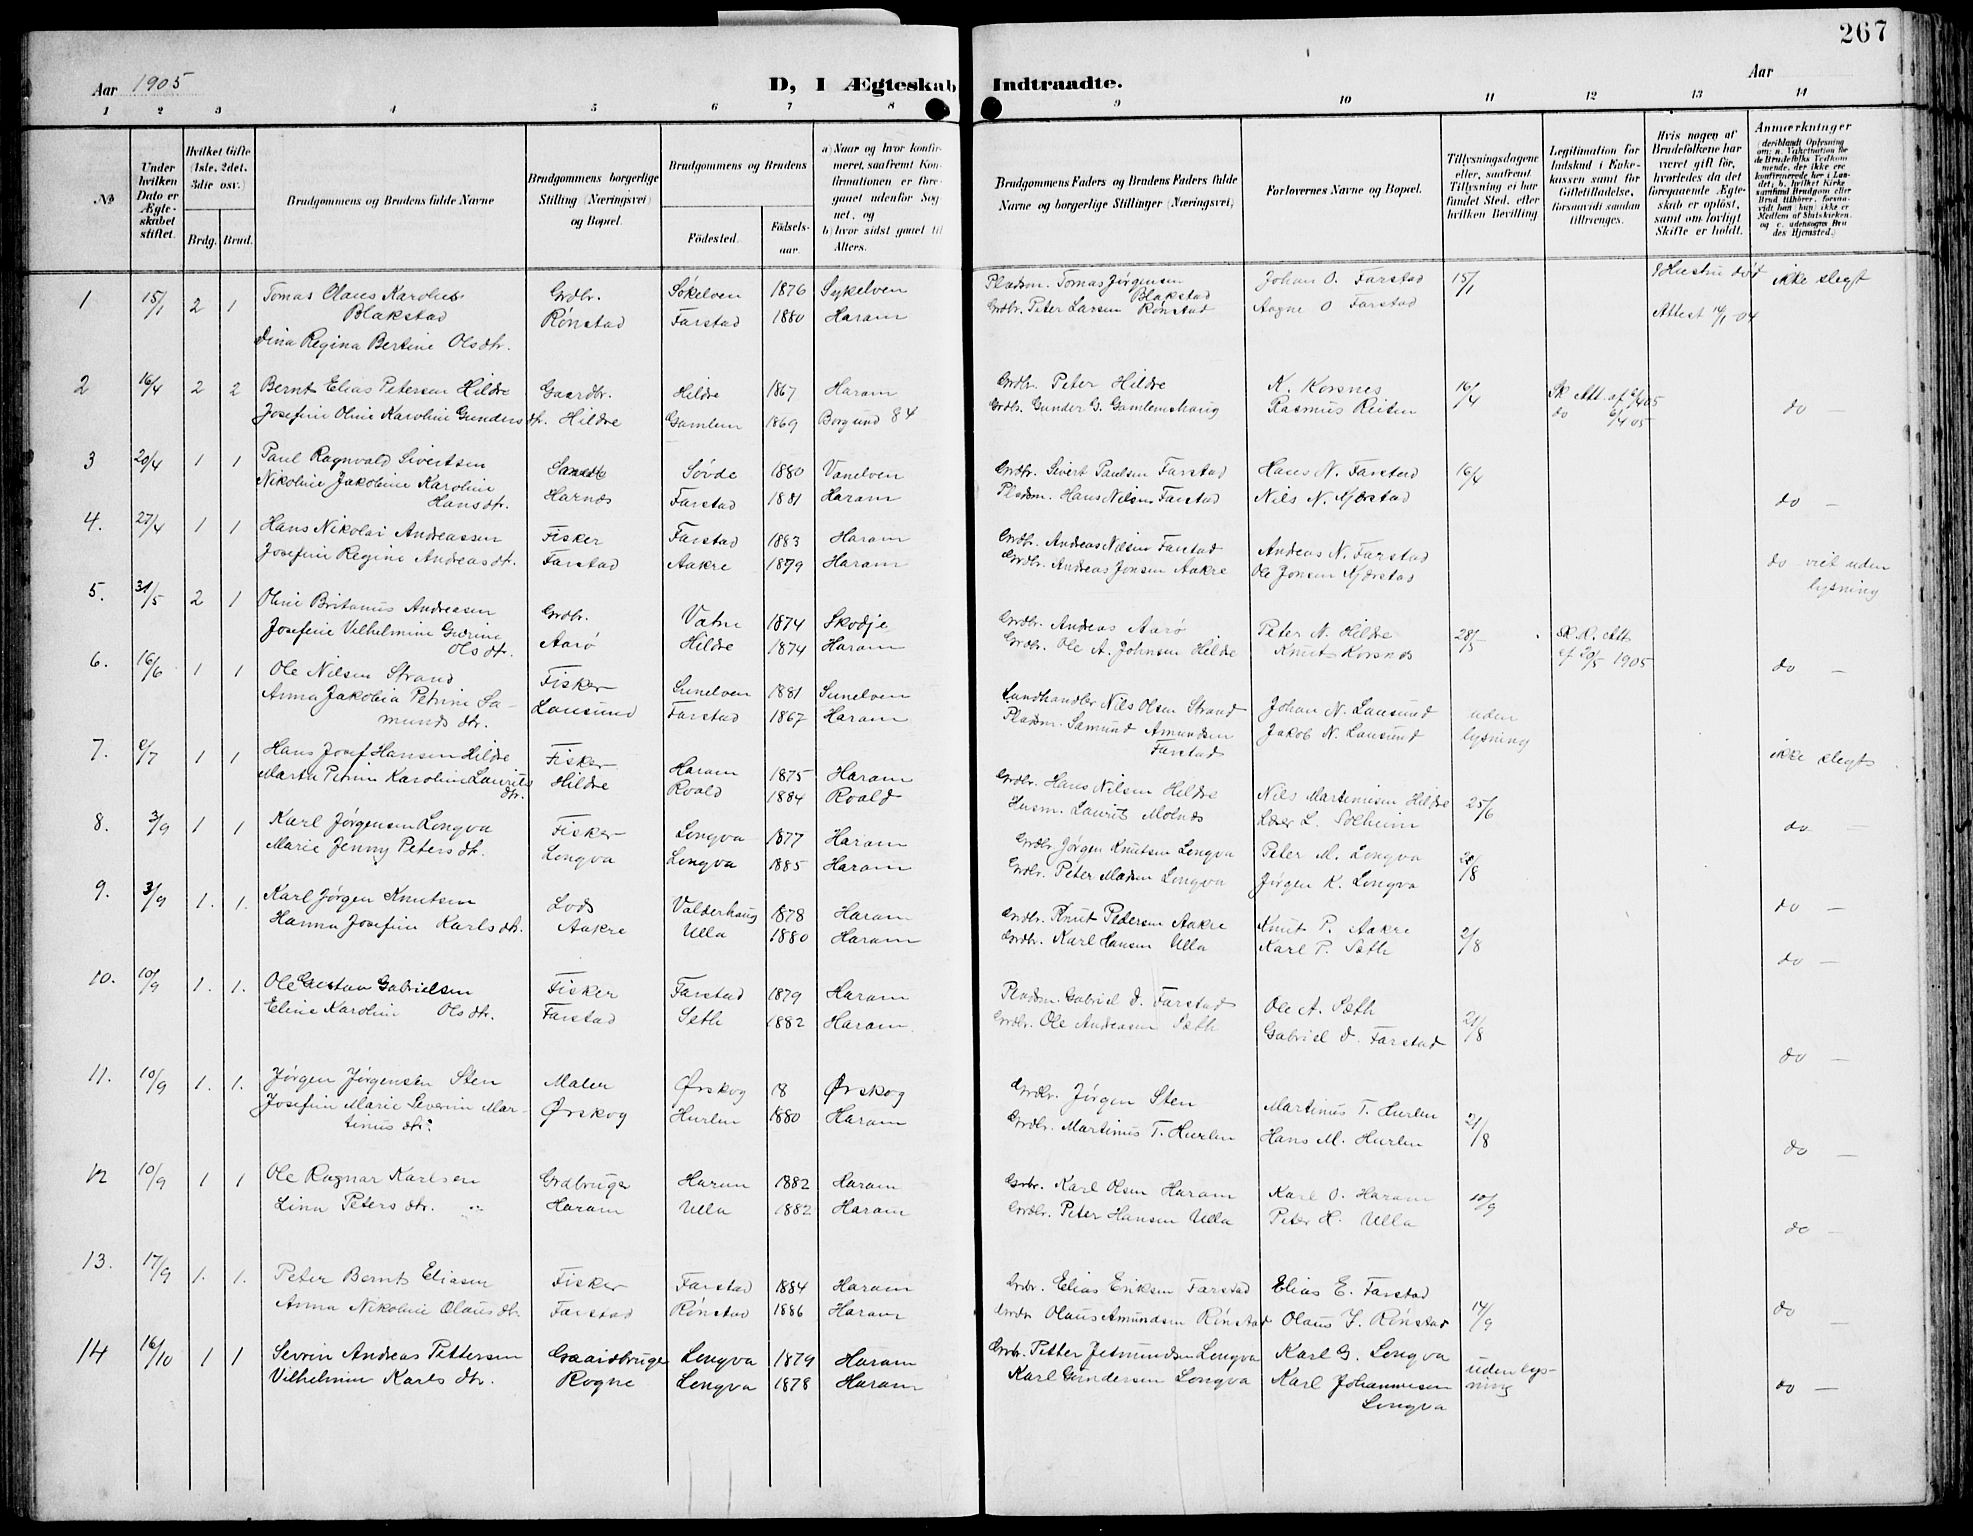 267
Aar 1905
D, I Ægteskab Indtraadte.
Aar
1 2 3 4 5 6 7 8 9 10 11 12 13 14
№
Under hvilken Dato er Ægteskabet stiftet.
Hvilket Gifte (1ste, 2det, 3die osv.)
Brdg. Brud.
Brudgommens og Brudens fulde Navne
Brudgommens borgerlige Stilling (Næringsvei) og Bopæl.
Brudgommens og Brudens
Födested.
Födselsaar.
a) Naar og hvor konfirmeret, saafremt Konfirmationen er foregaaet udenfor Sognet, og
b) hvor sidst gaaet til Alters.
Brudgommens Faders og Brudens Faders fulde Navne og borgerlige Stillinger (Næringsvei)
Forlovernes Navne og Bopæl.
Tillysningsdagene eller, saafremt Tillysning ei har fundet Sted, efter hvilken Bevilling
Legitimation for Indskud i Enkekassen samt for Giftetilladelse, forsaavidt saadan tiltrænges.
Hvis nogen af Brudefolkene har været gift før, hvorledes da det foregaaende Ægteskab er opløst, samt om lovligt Skifte er holdt.
Anmerkninger
(deriblandt Oplysning om: a. Vakcination for de Brudefolks Vedkommende, der ikke ere konfirmerede her i Landet; b. hvilket Kirkesamfund Brudgom eller Brud tilhører, forsaavidt han (hun) ikke er Medlem af Statskirken, og c. udensogns Brudes Hjemsted.)
1 15/1 2 1 Tomas Olaus Karolius Grdbr. Sökelven 1876 Sykelven Pladsm. Tomas Jørgensen Johan O. Farstad 15/1 Hustru død ikke slegt
Blakstad Rönstad Farstad 1880 Haram Blakstad
Grdbr. Peter Larsen Rönstad Aagne O Farstad Attest 14/1 04
Dina Regina Bertine Olsdtr.
2 16/4 2 2 Bernt Elias Petersen Hildre Gaardbr. Hildre 1867 Haram Grdbr. Peter Hildre K. Korsnes 16/4 Sk. Att. af 6/4 05
Josefine Oline Karoline Gundersdtr. Hildre Gamlem 1869 Borgund 84 Grdbr. Gunder G. Gamlemshaug Rasmus Reiten do 6/4 05 do —
3 20/4 1 1 Paul Ragnvald Sivertsen Sövde 1880 Vanelven Grdbr. Sivert Paulsen Farstad Hans N. Farstad 16/4
Nikoline Jakobine Karoline Harnes Farstad 1881 Haram Pladsm. Hans Nilsen Farstad Nils N. Kjærstad do —
Hansdtr.
4. 27/4 1 1 Hans Nikolai Andreassen Fisker Farstad 1883 Haram Grdbr. Andreas Nilsen Farstad Andreas N. Farstad
Josefine Regine Andreasdtr. Farstad Aakre 1879 Haram Grdbr. Andreas Jonsen Aakre Ole Jonsen Kjærstad do viet uden lysning
5. 31/5 2 1 Oline Britanus Andreasen Grdbr. Vatne 1874 Skodje Grdbr. Andreas Aarö Peter N. Hildre 28/5 Sk. O. Att.
Josefine Vilhelmine Gurine Aarö Hildre 1874 Haram Grdbr. Ole A. Johnsen Hildre Knut Korsnes af 20/5 1905 do —
Olsdtr.
6. 16/6 1 1 Ole Nilsen Strand Fisker Sunelven 1881 Sunelven Landhandler Nils Olsen Strand Johan N. Lausund uden
Anna Jakobia Petrine Sa- Lausund Farstad 1867 Haram Pladsm. Samund Amundsen Jakob N. Lausund lysning
munds dtr. Farstad ikke slegt
7. 2/7 1 1 Hans Josef Hansen Hildre Fisker Haram 1875 Haram Grdbr. Hans Nilsen Hildre Nils Martinusen Hildre 25/6
Marta Petrine Karoline Lauritsdtr. Hildre Roald 1884 Roald Husm. Laurits Molnes L. Solheim do —
8. 3/9 1 1 Karl Jørgensen Longva Fisker Longva 1877 Haram Grdbr Jørgen Knutsen Longva Peter M. Longva 20/8
Marie Jenny Peters dtr. Longva Longva 1885 Haram Grdbr. Peter Madsen Longva Jørgen K. Longva do —
9. 3/9 1. 1. Karl Jørgen Knutsen Lods Valderhaug 1878 Haram Grdbr. Knut Pedersen Aakre Knut P. Aakre 2/8
Hanna Josefine Karlsdtr. Aakre Ulla 1880 Haram Grdbr. Karl Hansen Ulla Karl P. Sæth do —
10. 10/9 1. 1. Ole Gustav Gabrielsen Fisker Farstad 1879 Haram Pladsm. Gabriel D. Farstad Ole A. Sæth 21/8
Eline Karoline Olsdtr. Farstad Sæth 1882 Haram. Grdbr. Ole Andreasen Sæth Gabriel D. Farstad do —
11. 10/9 1. 1. Jørgen Jørgensen Sten Maler Ørskog 18 Ørskog Grdbr. Jørgen Sten Martinus T. Hurlen 21/8
Josefine Marie Severine Mar- Ørskog Hurlen 1880 Haram Grdbr. Martinus T. Hurlen Hans M. Hurlen do —
tinus dtr.
12 10/9 1 1 Ole Ragnar Karlsen Grdbruger Haram 1882 Haram Grdbr. Karl Olsen Haram Karl O. Haram 10/9
Lina Peters dtr. Haram Ulla 1882 Haram Grdbr. Peter Hansen Ulla Peter H. Ulla do —
13. 17/9 1. 1. Peter Bernt Eliasen Fisker Farstad 1884 Haram Grdbr. Elias Eriksen Farstad Elias E. Farstad 14/9
Anna Nikoline Olausdtr. Farstad Rönstad 1886 Haram Grdbr Olaus Amundsen Rönstad Olaus J. Rönstad do —
14 16/10 1 1 Sevrin Andreas Pettersen Gaardbruger Longva 1879 Haram Grdbr. Petter Jetmundsen Longva Karl G. Longva uden lys-
Vilhelmine Karls dtr. Rogne Longva 1878 Haram Karl Gundersen Longva Karl Johannesen ning do —
Longva